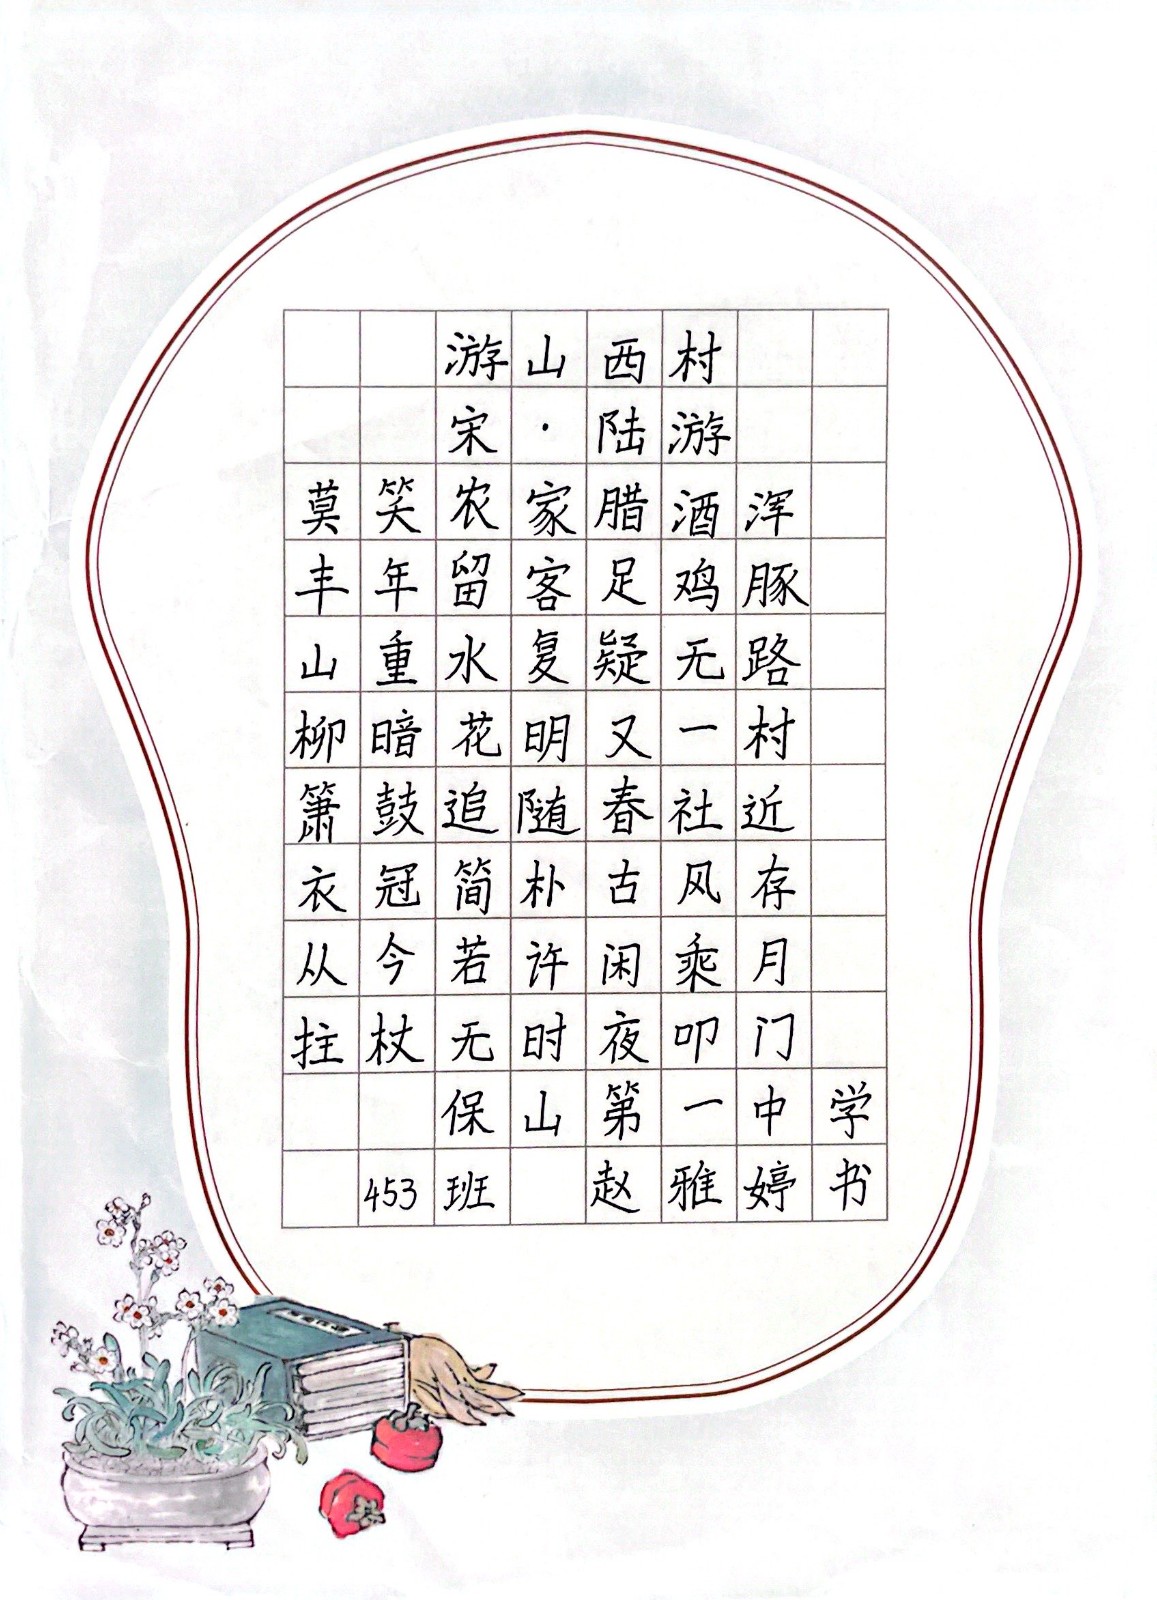 游山西村
宋·陆游
莫笑农家腊酒浑
丰年留客足鸡豚
山重水复疑无路
柳暗花明又一村
箫鼓追随春社近
衣冠简朴古风存
从今若许闲乘月
拄杖无时夜叩门
保山第一中学
453班 赵雅婷书